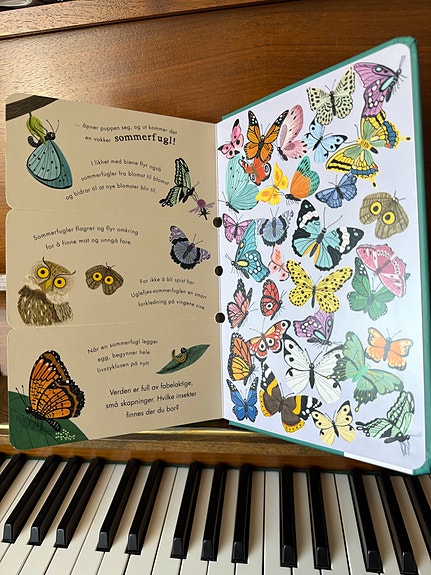 ... åpner puppen seg, og ut kommer det
en vakker sommerfugl!
I likhet med biene flyr også
sommerfugler fra blomst til blomst
og bidrar til at nye blomster blir til.
Sommerfugler flagrer og flyr omkring
for å finne mat og unngå fare.
For ikke å bli spist har
Uglefjes-sommerfuglen en smart
forkledning på vingene sine.
Når en sommerfugl legger
egg, begynner hele
livssyklusen på nytt.
Verden er full av fabelaktige,
små skapninger. Hvilke insekter
finnes der du bor?